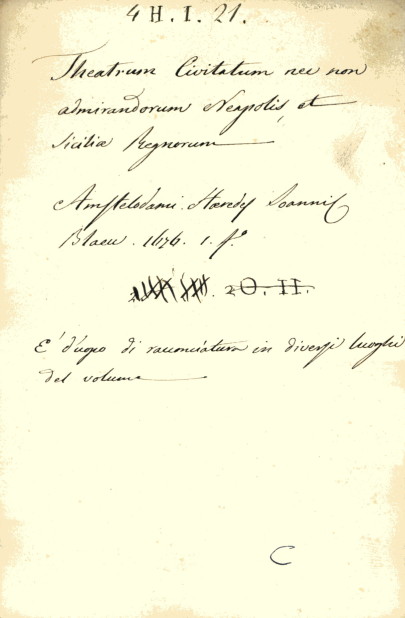 4 H. I. 21.
Theatrum Civitatum nec non
admirandorum Neapolis, et
Siciliæ Regnorum
Amstelodami. Hæredes Joannis
Blaeu. 1676. 1. f.º
2 O. II.
E' d'uopo di racconciatura in diversi luoghi
del volume
C